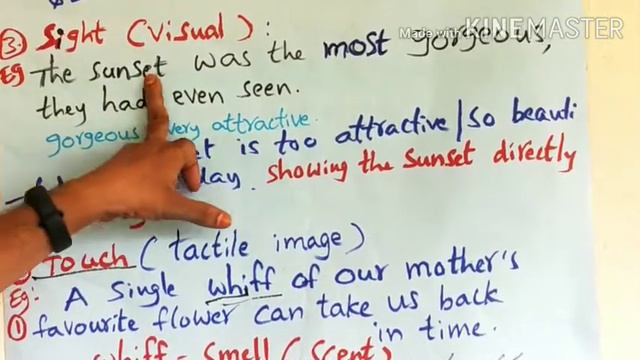 3. Sight (Visual) :
Made with KINEMASTER
Eg The sunset was the most gorgeous,
they had even seen.
gorgeous very attractive.
is too attractive/so beauti
day. showing the sunset directly
Touch (tactile image)
Eg: A single whiff of our mother's
① favourite flower can take us back
in time.
whiff - smell (scent)